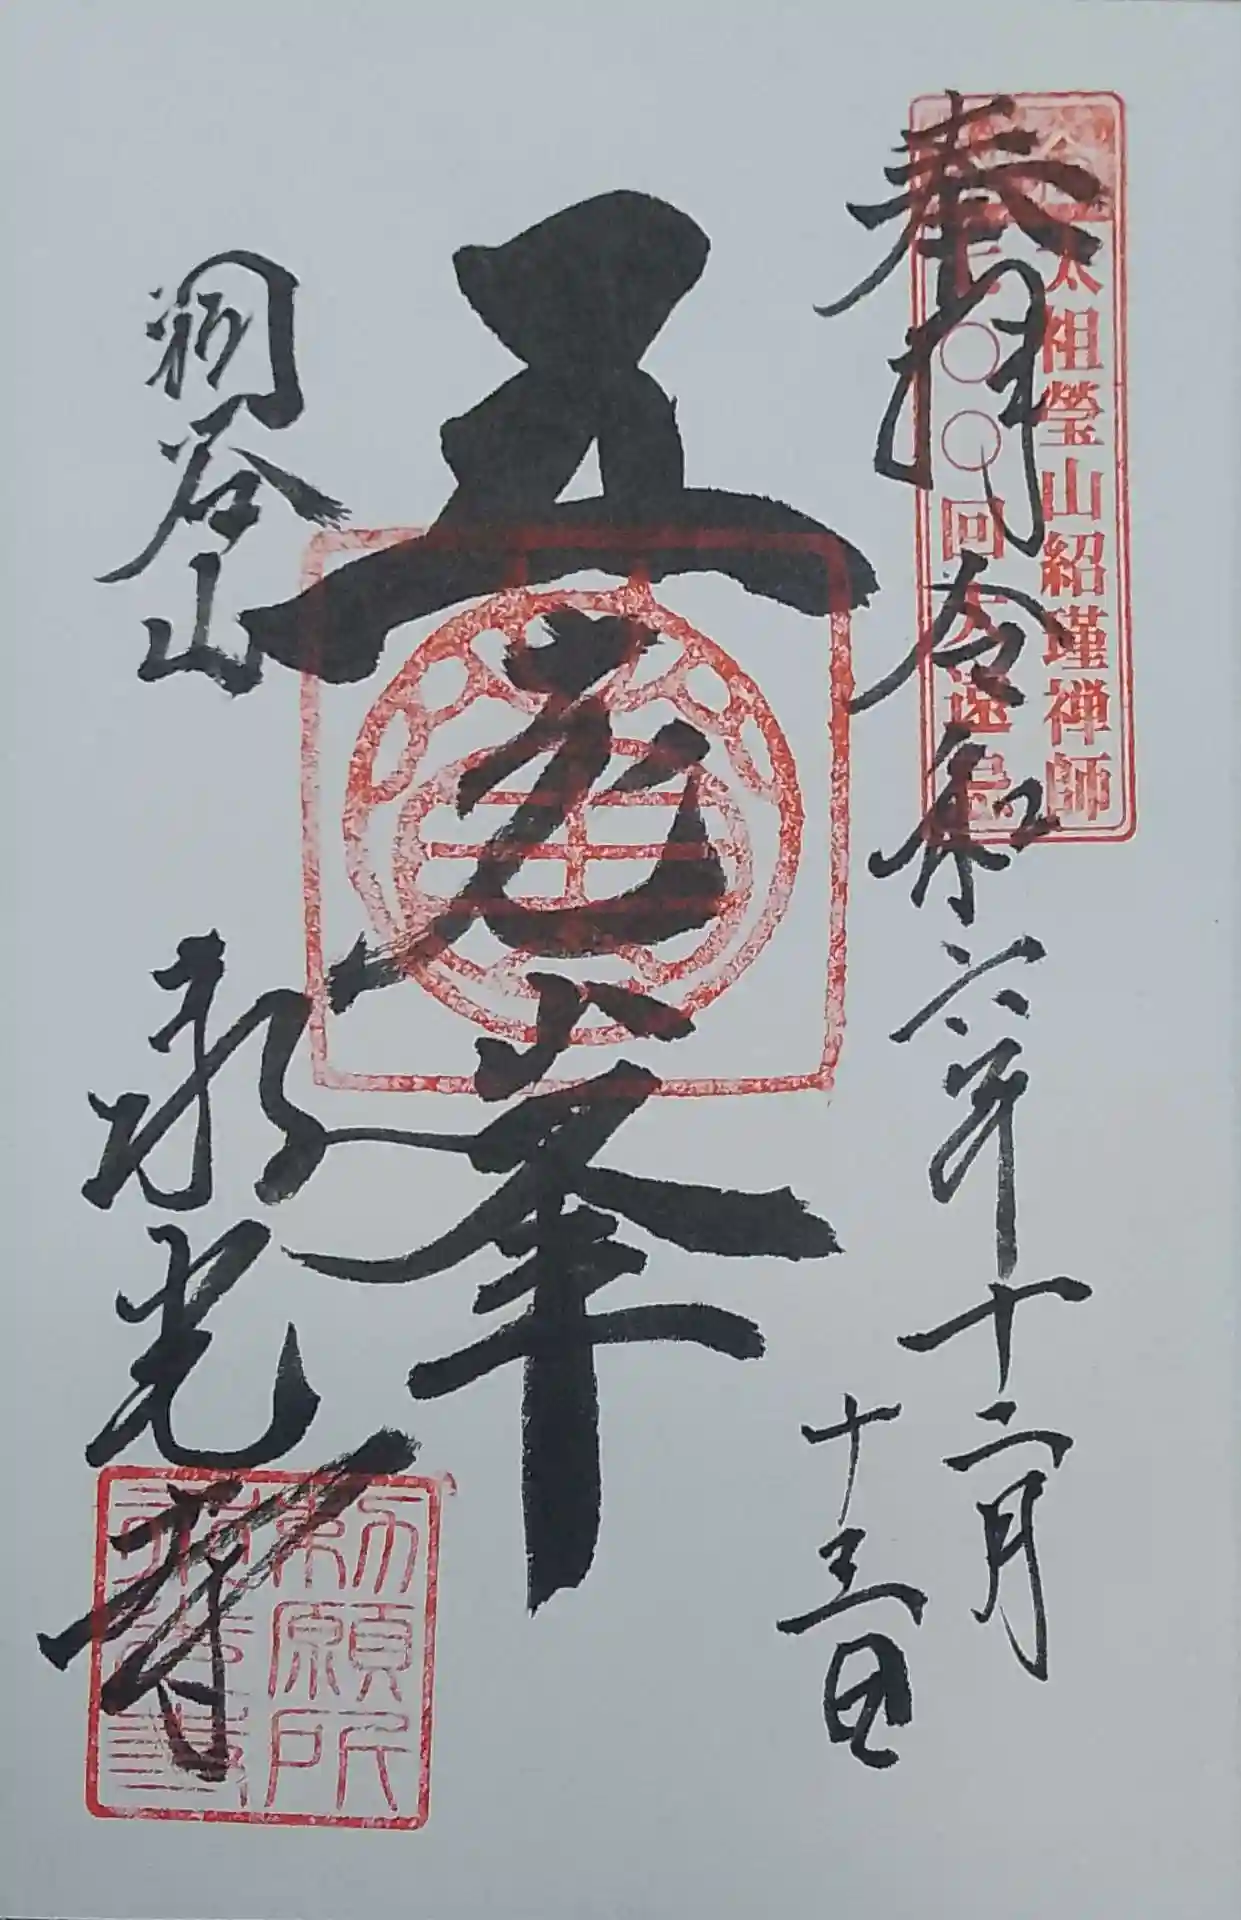 奉拝 令和六年十二月
十三日
太祖瑩山紹瑾禅師
七〇〇回大遠忌
五老峯
洞谷山
永光寺
勅願所